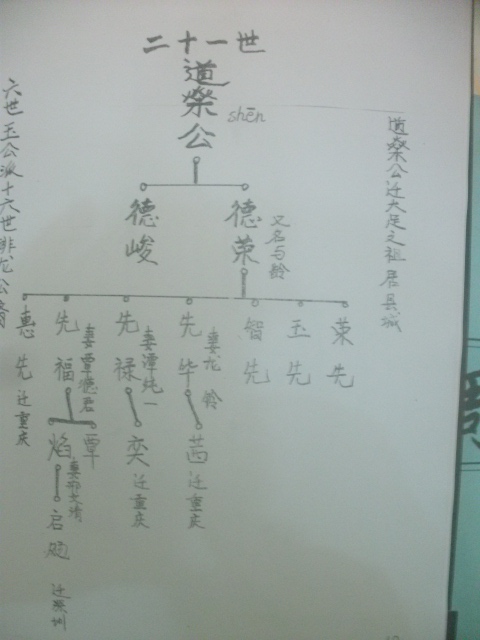 二十一世
道燊公
shēn
道燊公迁大足之祖居县城
六世玉公派十六世非龙公裔
德峻
德荣
又名与龄
惠先
迁重庆
先福
妻覃德君
先禄
妻谭纯一
先毕
妻龙龄
智先
玉先
荣先
焰
覃
奕
迁重庆
茜
迁重庆
妻邢文靖
启
迁深圳